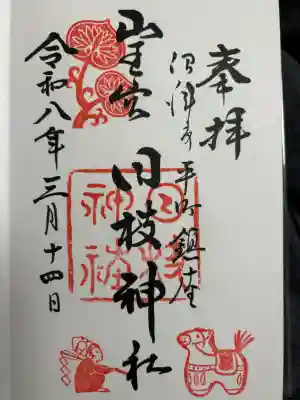 奉拝
沼津市平町鎮座
山王宮
日枝神社
日枝神社
令和八年三月十四日